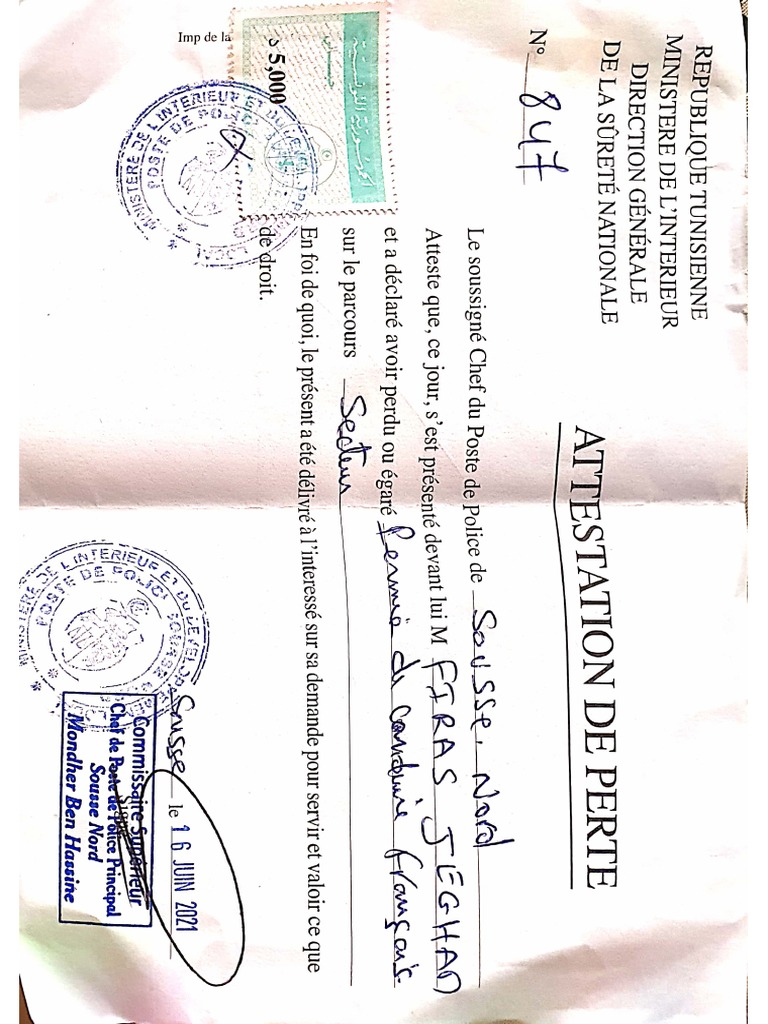 REPUBLIQUE TUNISIENNE
MINISTERE DE L'INTERIEUR
DIRECTION GÉNÉRALE
DE LA SÛRETÉ NATIONALE
N° 847
ATTESTATION DE PERTE
Le soussigné Chef du Poste de Police de Sousse. Nord
Atteste que, ce jour, s'est présenté devant lui M FIRAS JEGHAM
et a déclaré avoir perdu ou égaré Permis de conduire Français
sur le parcours Secteur
En foi de quoi, le présent a été délivré à l'interessé sur sa demande pour servir et valoir ce que
de droit.
Sousse le 16 JUIN 2021
Commissaire Supérieur
Chef de Poste de Police Principal
Sousse Nord
Mondher Ben Hassine
MINISTERE DE L'INTERIEUR ET DU DEVELOP
POSTE DE POLICE SOUSSE
الجمهورية التونسية
5,000 د
MINISTERE DE L'INTERIEUR ET DU DEVELOP LOCAL
POSTE DE POLICE
Imp de la